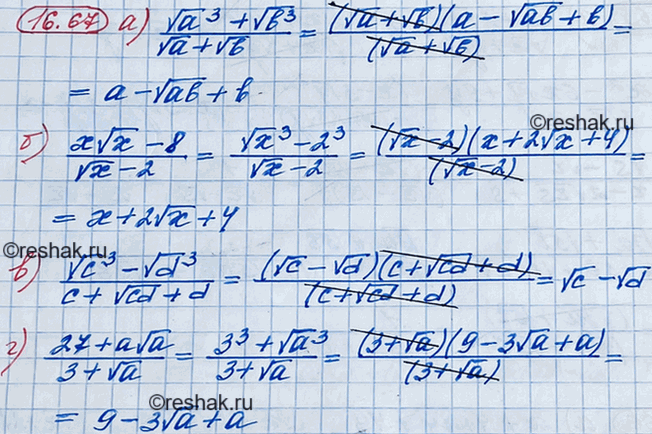 16.67 а) (√a³ + √b³)/(√a + √b) = ((√a + √b)(a − √ab + b))/((√a + √b)) =
©reshak.ru
= a − √ab + b
б) (x√x − 8)/(√x − 2) = (√x³ − 2³)/(√x − 2) = ((√x − 2)(x + 2√x + 4))/((√x − 2)) =
= x + 2√x + 4
©reshak.ru
в) (√c³ − √d³)/(c + √cd + d) = ((√c − √d)(c + √cd + d))/((c + √cd + d)) = √c − √d
©reshak.ru
г) (27 + a√a)/(3 + √a) = (3³ + √a³)/(3 + √a) = ((3 + √a)(9 − 3√a + a))/((3 + √a)) =
©reshak.ru
= 9 − 3√a + a